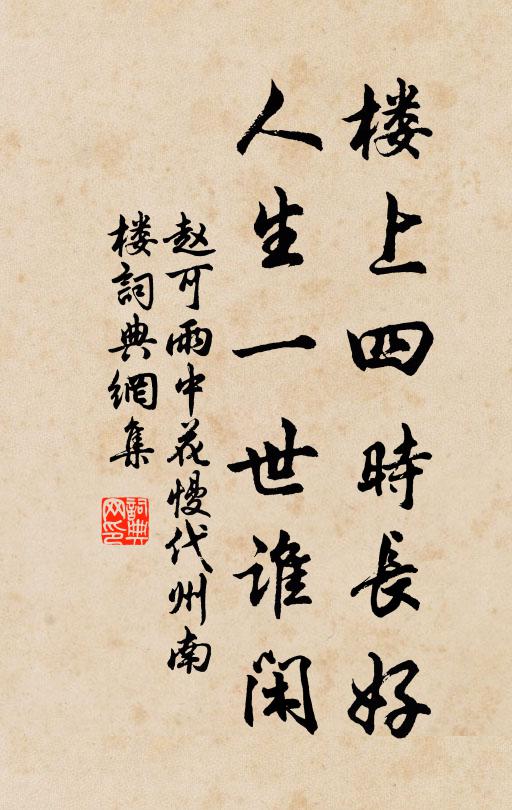 楼上四時長好
人生一世谁闲
赵可雨中花慢代州南
楼詞典網集
詞典
网印